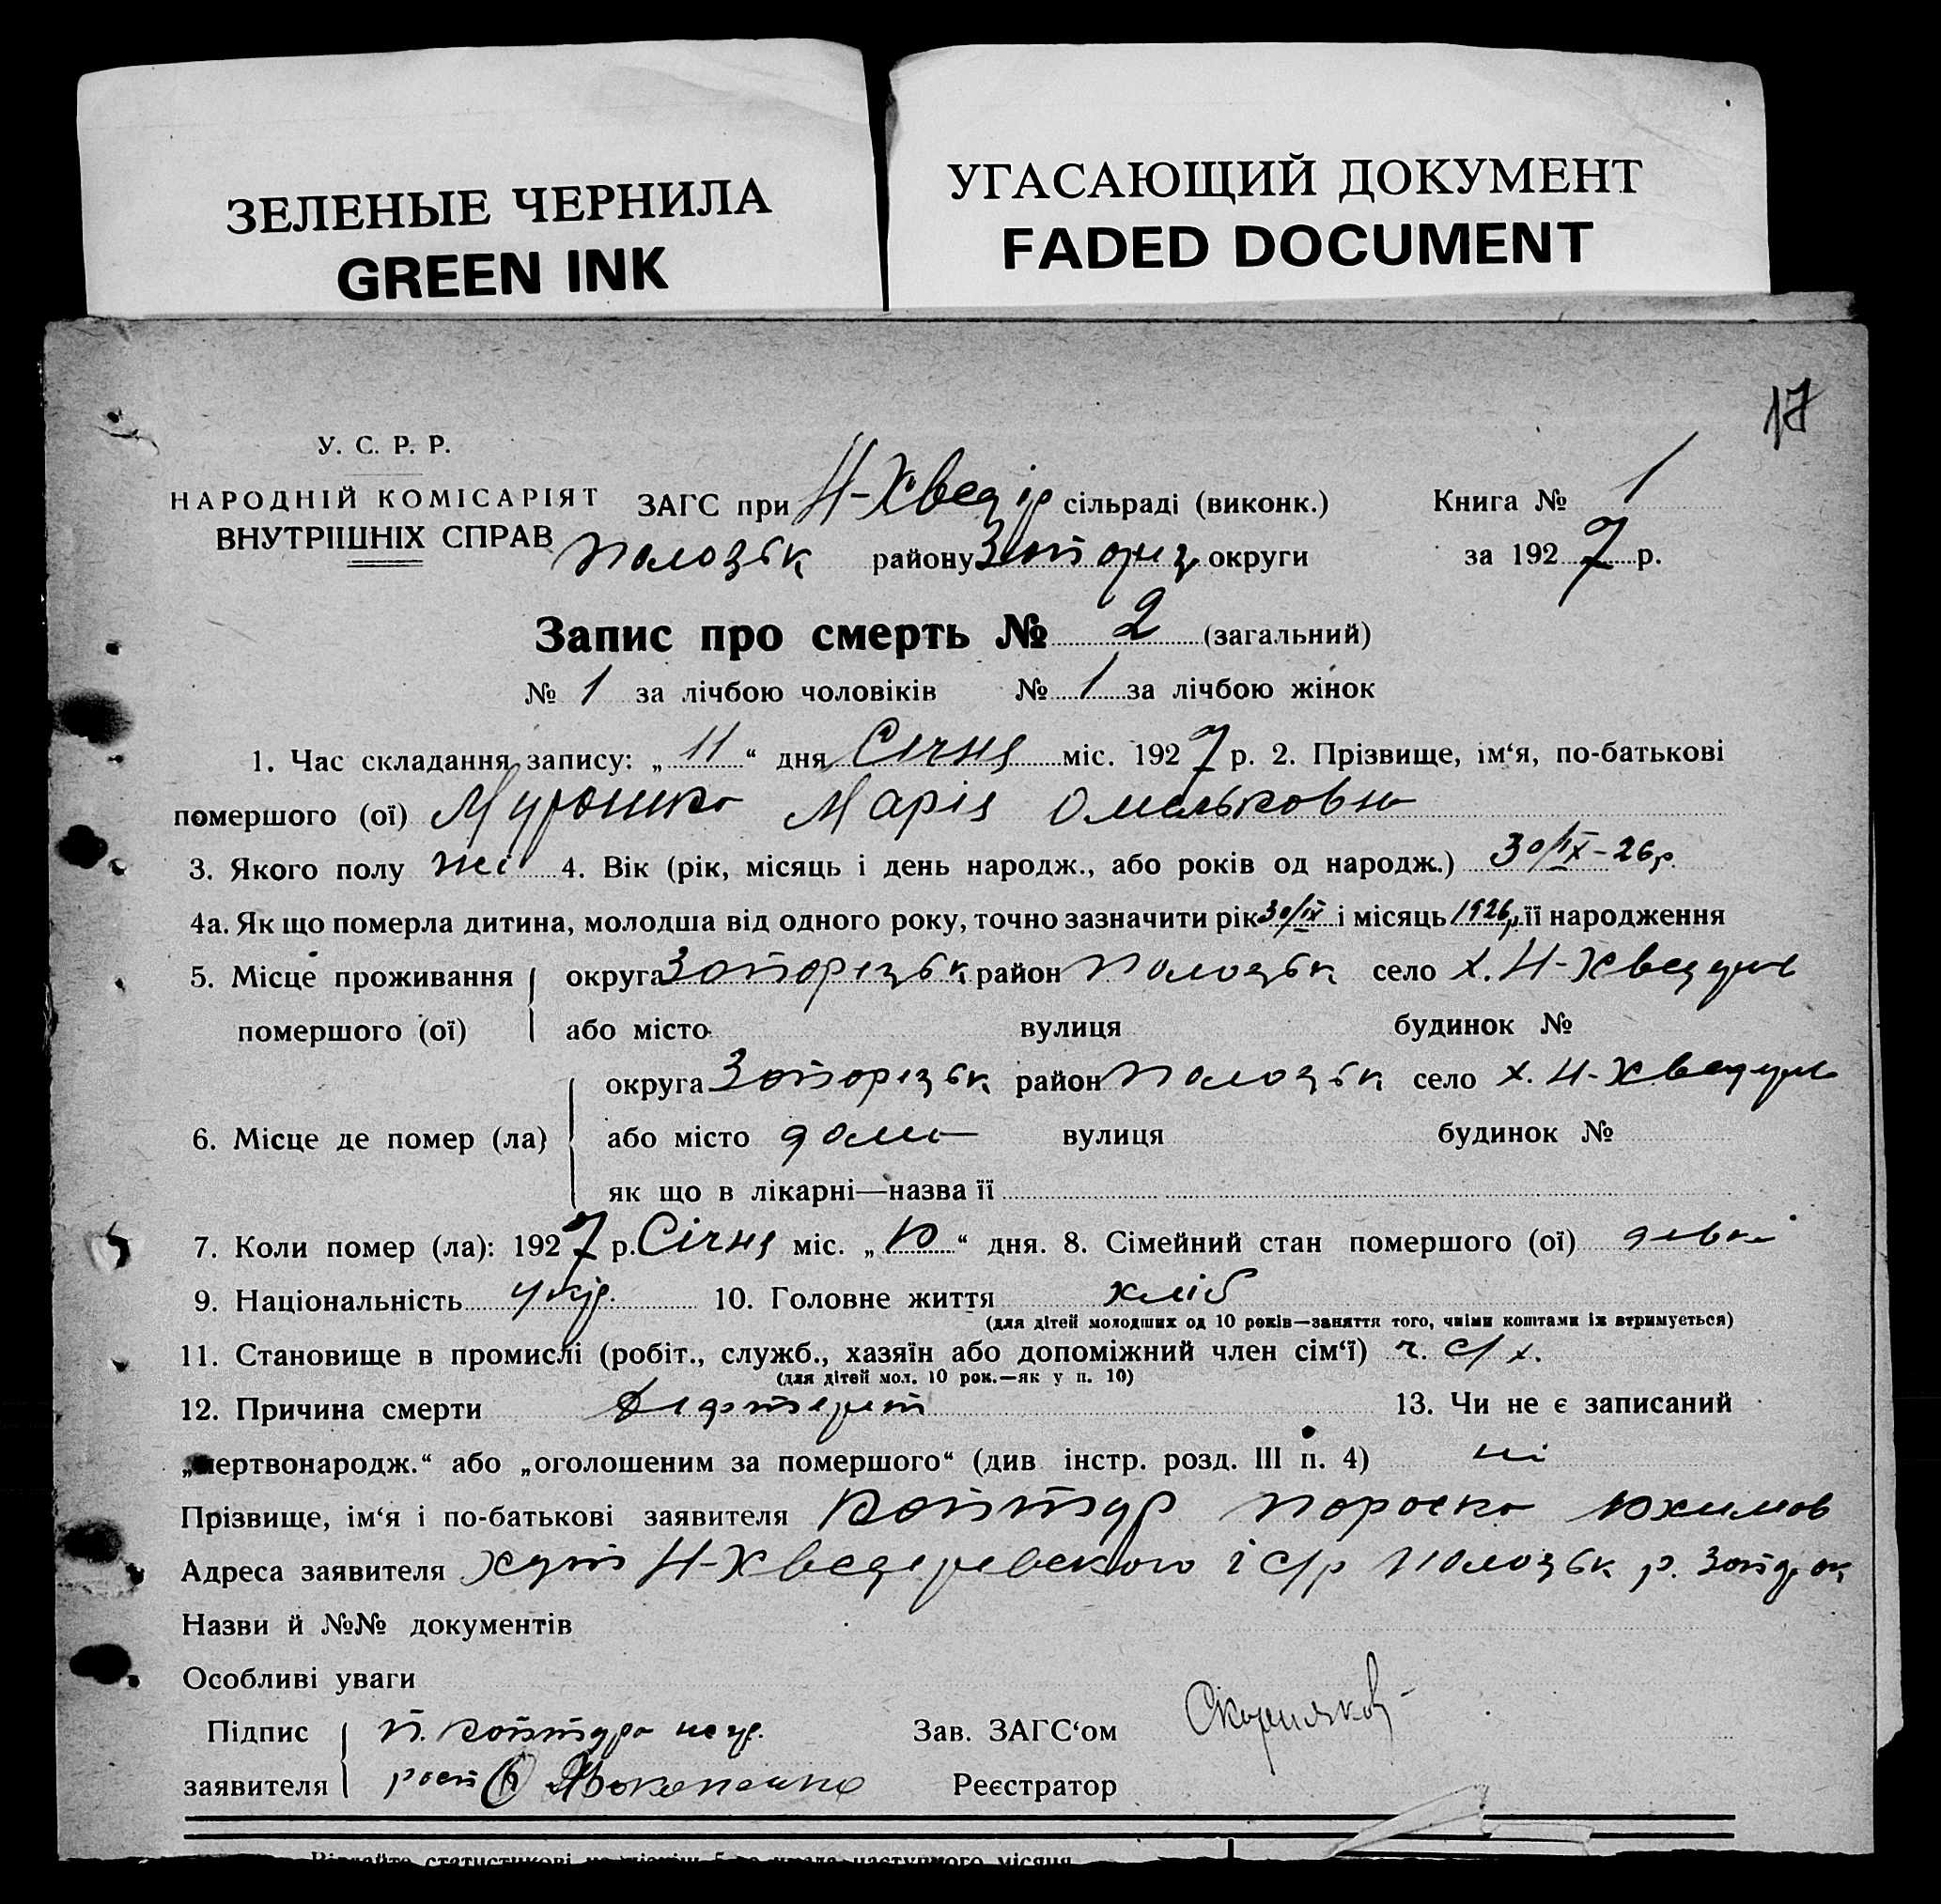 ЗЕЛЕНЫЕ ЧЕРНИЛА
GREEN INK
УГАСАЮЩИЙ ДОКУМЕНТ
FADED DOCUMENT
17
У. С. Р. Р.
НАРОДНІЙ КОМІСАРІЯТ
ВНУТРІШНІХ СПРАВ
ЗАГС при Н-Хведір сільраді (виконк.) Книга № 1
Полозьк району Запоріз округи за 1927 р.
Запис про смерть № 2 (загальний)
№ 1 за лічбою чоловіків № 1 за лічбою жінок
1. Час складання запису: „11“ дня Січня міс. 1927 р. 2. Прізвище, ім‘я, по-батькові
помершого (ої) Марія Омельковна
3. Якого полу жі 4. Вік (рік, місяць і день народж., або років од народж.) 30/IX-26р.
4а. Як що померла дитина, молодша від одного року, точно зазначити рік 30/IX і місяць 1926р. її народження
5. Місце проживання помершого (ої) округа Запорізьк район Полозьк село х. Н-Хведорів
або місто вулиця будинок №
6. Місце де помер (ла) округа Запорізьк район Полозьк село х. Н-Хведорів
або місто дома вулиця будинок №
як що в лікарні—назва її
7. Коли помер (ла): 1927 р. Січня міс. „10“ дня. 8. Сімейний стан помершого (ої)
9. Національність укр. 10. Головне життя хліб
(для дітей молодших од 10 років—заняття того, чиїми коштами їх втримується)
11. Становище в промислі (робіт., служб., хазяїн або допоміжний член сім‘ї) ч. с/х.
(для дітей мол. 10 рок.—як у п. 10)
12. Причина смерти Дефтеріт 13. Чи не є записаний
„мертвонародж.“ або „оголошеним за помершого“ (див інстр. розд. III п. 4) ні
Прізвище, ім‘я і по-батькові заявителя Коптур Юхимов
Адреса заявителя хут Н-Хведоревского с/р Полозьк р.
Назви й №№ документів
Особливі уваги
Підпис заявителя П. Коптура негр.
рост
Зав. ЗАГС‘ом Скорняков
Реєстратор